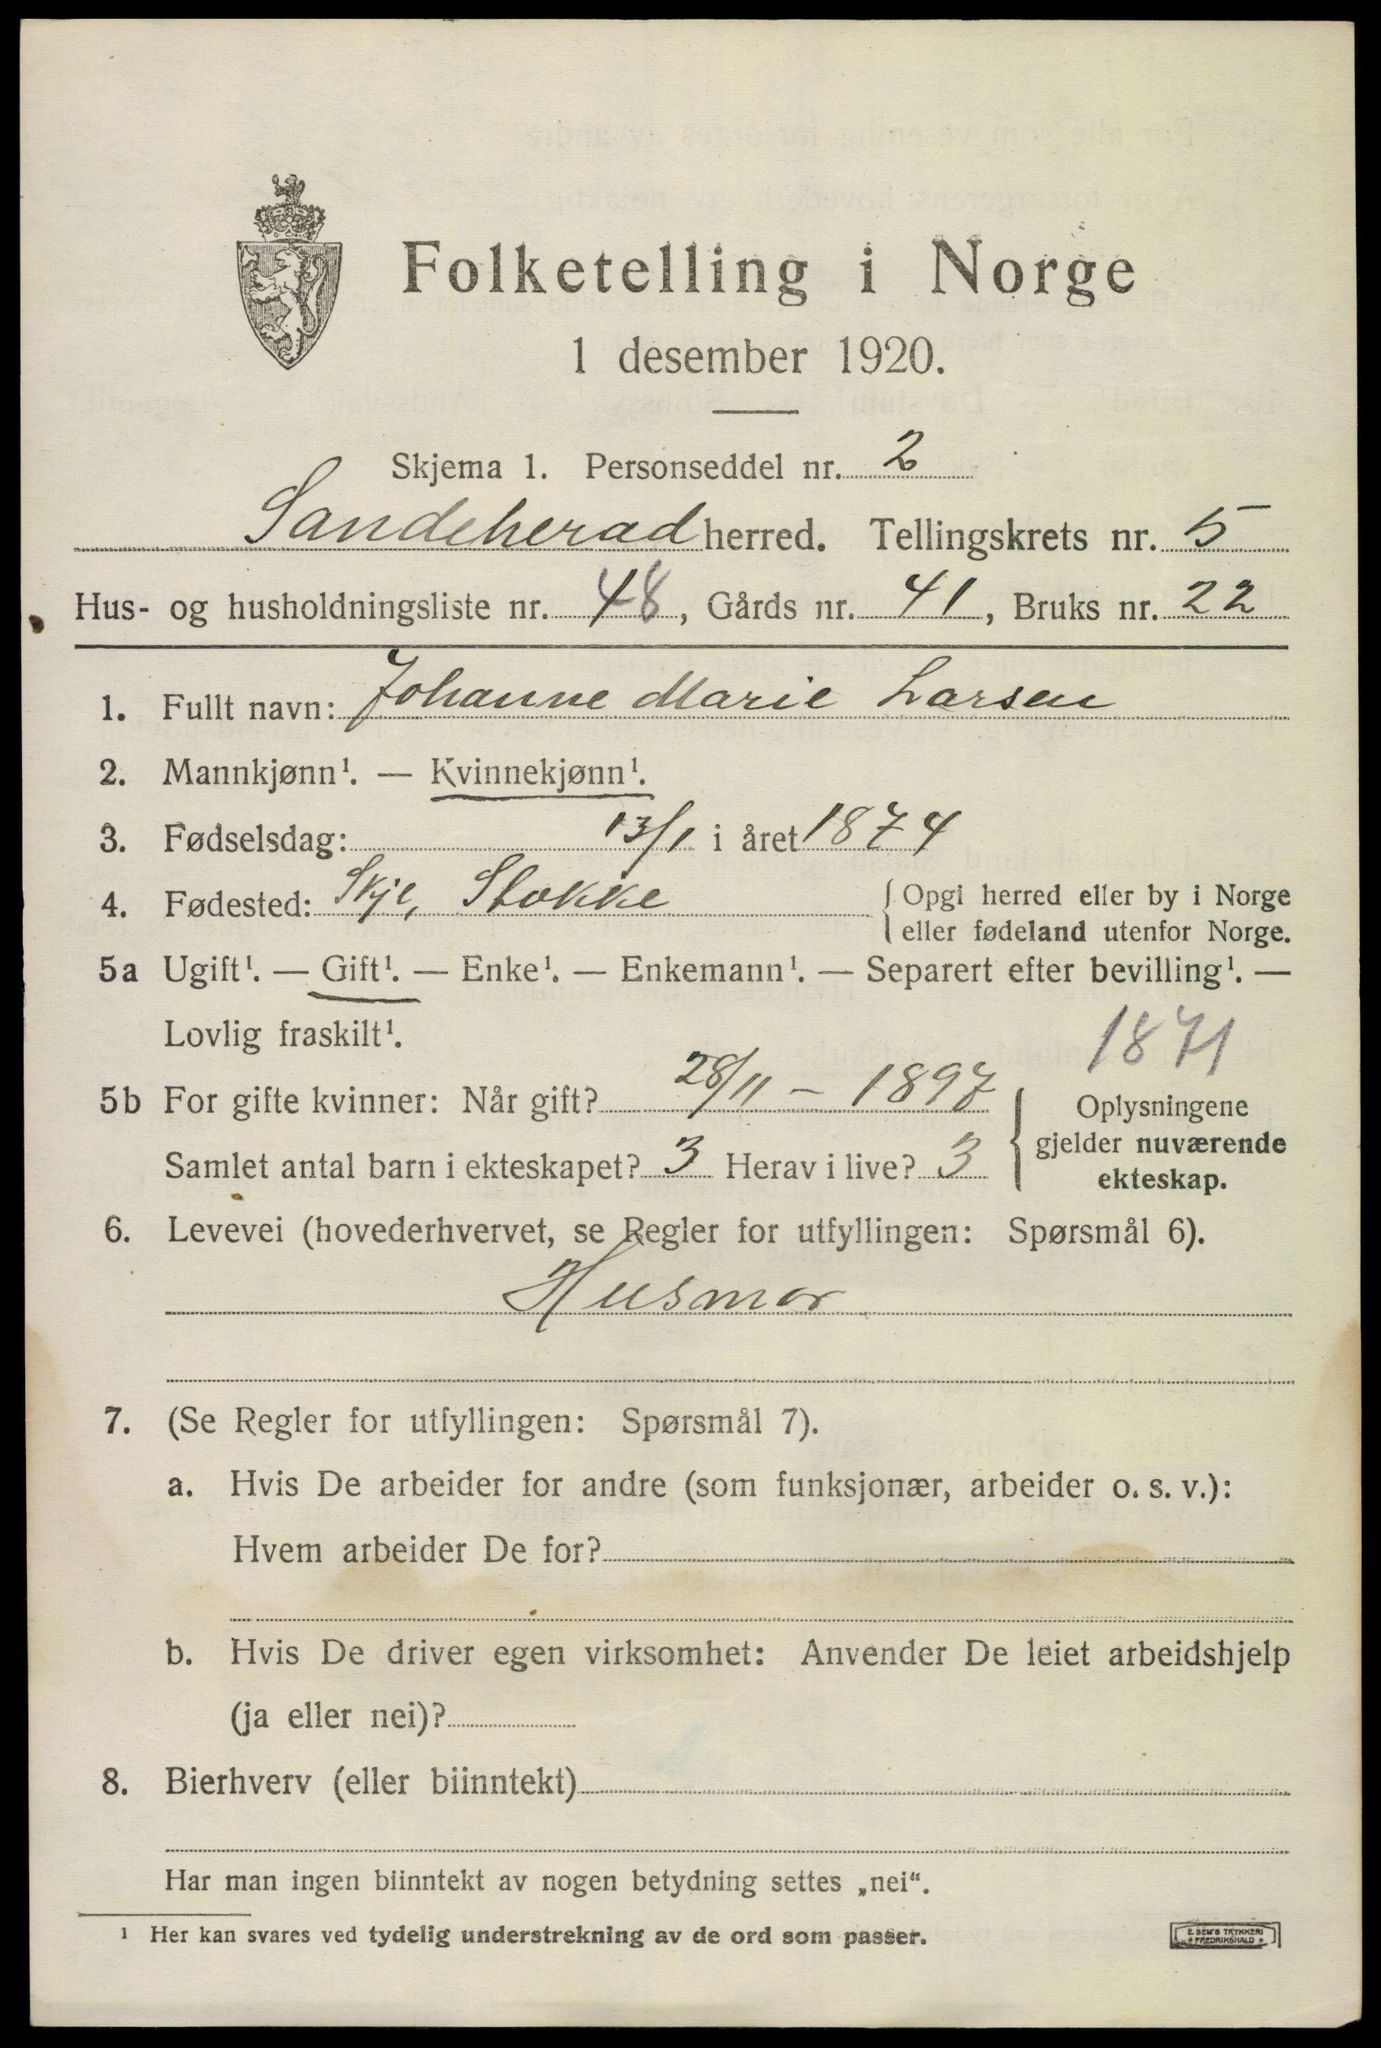 Folketelling i Norge
1 desember 1920.
Skjema 1. Personseddel nr. 2
Sandeherad herred. Tellingskrets nr. 5
Hus- og husholdningsliste nr. 48, Gårds nr. 41, Bruks nr. 22
1. Fullt navn: Johanne Marie Larsen
2. Mannkjønn¹. — Kvinnekjønn¹.
3. Fødselsdag: 13/1 i året 1874
4. Fødested: Skje, Stokke { Opgi herred eller by i Norge
eller fødeland utenfor Norge.
5a Ugift¹. — Gift¹. — Enke¹. — Enkemann¹. — Separert efter bevilling¹. —
Lovlig fraskilt¹. 1871
5b For gifte kvinner: Når gift? 28/11 – 1897
Samlet antal barn i ekteskapet? 3 Herav i live? 3
} Oplysningene
gjelder nuværende
ekteskap.
6. Levevei (hovederhvervet, se Regler for utfyllingen: Spørsmål 6).
Husmor
7. (Se Regler for utfyllingen: Spørsmål 7).
a. Hvis De arbeider for andre (som funksjonær, arbeider o. s. v.):
Hvem arbeider De for?
b. Hvis De driver egen virksomhet: Anvender De leiet arbeidshjelp
(ja eller nei)?
8. Bierhverv (eller biinntekt)
Har man ingen biinntekt av nogen betydning settes „nei“.
¹ Her kan svares ved tydelig understrekning av de ord som passer.
E. SEM'S TRYKKERI
FREDRIKSHALD